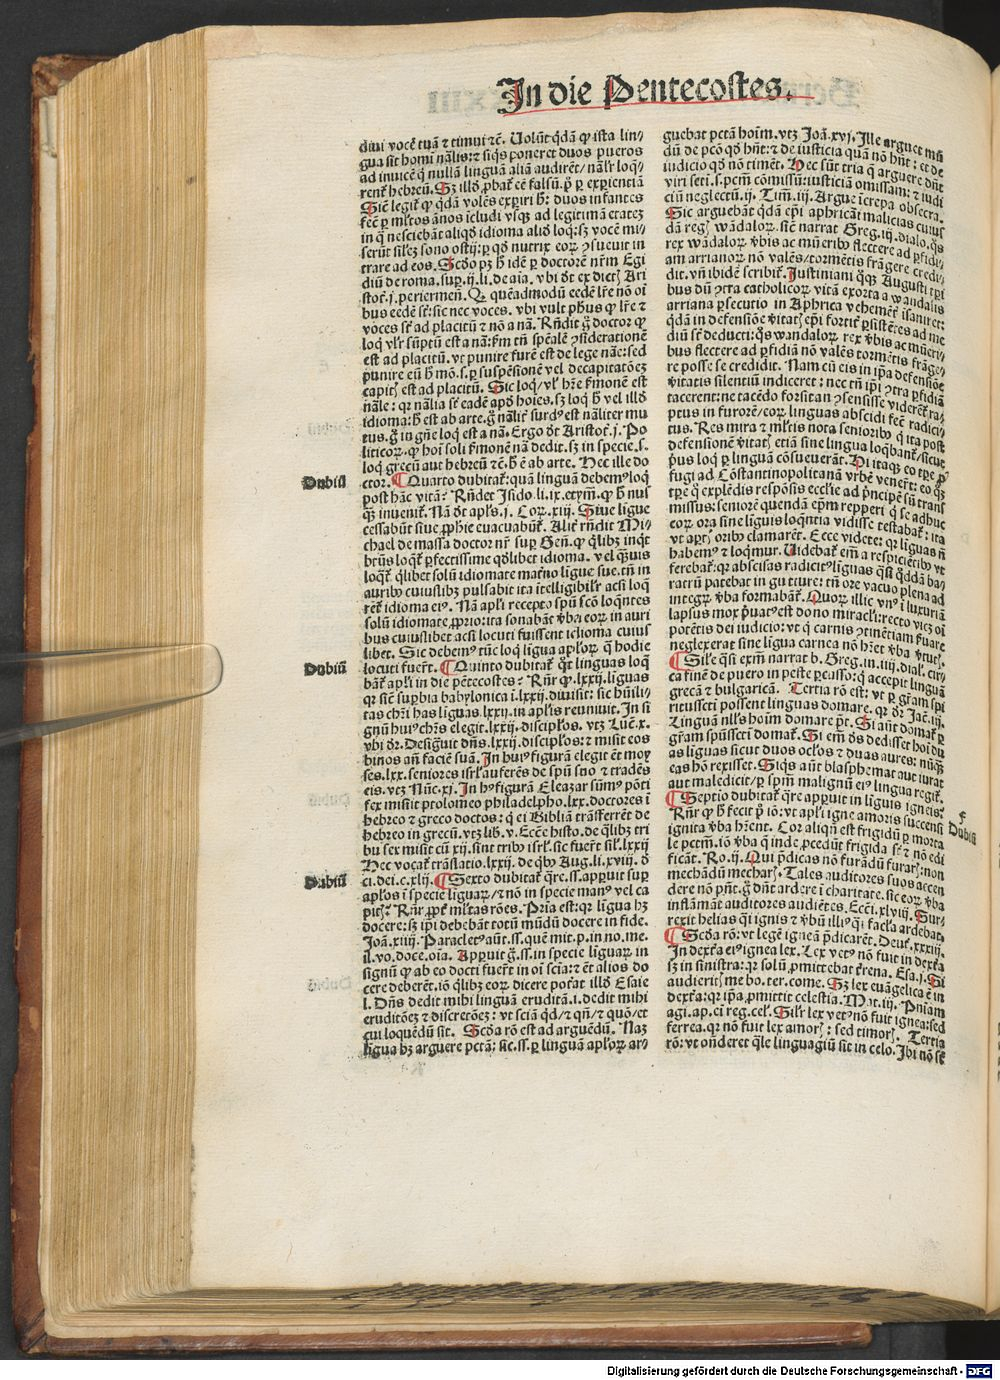 In die Pentecostes.
diui vocē tuā ⁊ timui ⁊c̄. Uolūt qdā ꝙ ista lin⸗
gua sit homī nālis: ⁊ siqs poneret duos pueros
ad inuicē q nullā linguā aliā audirēt/ nālr̄ loq⸗
rent hebreū. Sz illd ꝓbat eē falsū. p̄ ꝑ experientiā
Sic legit ꝙ qdā volēs exꝑiri h̄: duos infantes
fec̄ ꝑ ml̄tos ānos icludi vsqꝫ ad legitimā etatez
in q nesciebāt aliqd idioma aliō loq: sz vocē mi⸗
serūt silez sono ostij: ꝑ qd nutrix eoꝝ ꝯsueuit in
trare ad eos. Scdo pz h̄ idē ꝑ doctorē nr̄m Egi
diū de roma. suꝑ. ij. li. de aīa. vbi dt̄ ex dict Ari
stot. j. periermeū. Q quēadmodū eedē lr̄e nō oi
bus eedē st̄: sic nec voces. vbi vult phūs ꝙ lr̄e ⁊
voces st̄ ad placitū ⁊ nō a nā. Rn̄dit ḡ doctor ꝙ
loq vlr̄ sūptū est a nā: fm̄ tn̄ spēalē ꝯsiderationē
est ad placitū. vt punire furē est de lege nāe: sed
punire eū h̄ mō. s. ꝑ suspēsionē vel decapitatōez
capit est ad placitū. Sic loq/ vl̓ hr̄e fmonē est
nāle: qꝛ nālia st̄ eadē apd hoīes. sz loq h̄ vel illō
idioma: h̄ est ab arte. ḡ nālit̄ surd̓ est nāliter mu
tus. ḡ in gn̄e loq est a nā. Ergo dt̄ Aristot. j. Po
liticoꝝ. ꝙ hoī soli fmonē nā dedit. sz in specie. s.
loq grecū aut hebreū ⁊c̄. h̄ ē ab arte. Hec ille do
ctor. ¶ Quarto dubitat: quā linguā debem̓ loq
post hāc vitā? Rn̄det Isido. li. ix. etym̄. ꝙ h̄ nus
q̄ inuenit. Nā dt̄ apl̄s. j. Coꝝ. xiij. Siue ligue
cessabūt siue ꝓphie euacuabūt. Alit̄ rn̄dit Mi⸗
chael de massa doctor nr̄ suꝑ Gen̄. ꝙ qlibꝫ inqt
btūs loqt ꝑfectissime qdlibet idioma. vel q̄uis
loqt qlibet solū idiomate mat̄no ligue sue. tn̄ in
aurib̓ cuiuslibꝫ pulsabit ita itelligibilr̄ acsi loq
ret̄ idioma ei̓. Nā apl̄i recepto spū scō loq̄ntes
solū idiomate ꝓprio: ita sonabāt v̄ba eoꝝ in auri
bus cuiuslibet acsi locuti fuissent idioma cuius
libet. Sic debem̓ tūc loq ligua apl̄oꝝ q̄ hodie
locuti fuer̄t. ¶ Quinto dubitat q̄t linguas loq
bāt apl̄i in die pētecostes? Rn̄r ꝙ. lxxij. liguas
qꝛ sic suꝑbia babylonica i. lxxij. diuisit: sic hūili⸗
tas chr̄i has liguas. lxxij. in apl̄is reuniuit. In si
gnū hui̓ chr̄s elegit. lxxij. discipl̄os. vtꝫ Luc̄. x.
vbi dr̄. Desiguit dn̄s. lxxij. discipl̄os: ⁊ misit eos
binos an̄ faciē suā. In hui̓ figurā elegit ēt moy
ses. lxx. seniores isrl̄ auferēs de spū suo ⁊ tradēs
eis. vtꝫ Nūc. xj. In h̓ figurā Eleazar sūm̓ pōti
fex misit ptolomeo philadelpho. lxx. doctores i
hebreo ⁊ greco doctos: q̄ ei Bibliā trāsferrēt de
hebreo in grecū. vtꝫ lib. v. Ecc̄e histo. de qlibꝫ tri
bu sex misit cū xij. sint trib̓ isrl̄. sic fuer̄t sil̄. lxxij
Hec vocat trāslatio. lxxij. de qb̓ Aug. li. xviij. d̄
ci. dei. c. xlij. ¶ Sexto dubitat q̄re. ss. apꝑuit suꝑ
apl̄os i specie liguaꝝ/ ⁊ nō in specie man̓ vel ca
pit? Rn̄r ꝓpt̄ ml̄tas rōes. Pria est: qꝛ ligua hꝫ
docere: sz ip̄i debebāt totū mūdū docere in fide.
Joā. xiiij. Paraclet̓ aūt. ss. quē mit. p. in no. me.
il. vo. doce. oīa. Apꝑuit ḡ. ss. in specie liguaꝝ in
signū ꝙ ab eo docti fuer̄t in oī scia: ⁊ ēt alios do
cere deberēt. iō qlibꝫ eoꝝ dicere poterat illō Esaie
l. Dn̄s dedit mihi linguā eruditā. i. dedit mihi
eruditōez ⁊ discretōez: vt sciā qd/ ⁊ qn̄/ ⁊ quō/ et
cui loquēdū sit. Scda rō est ad arguēdū. Naꝫ
ligua hꝫ arguere pctā: sic. ss. ꝑ linguā apl̄oꝝ ar⸗
Dubiū
Dubiū
Dubiū
guebat pctā hoīm. vtꝫ Joā. xvj. Ille arguet mū
dū de pcō qd hn̄t: ⁊ de iusticia quā nō hn̄t: et de
iudicio qd nō timēt. Hec sūt tria q̄ arguere dn̄t
viri scti. s. pcm̄ cōmissū: iusticiā omissam: ⁊ iudi
ciū neglectū. ij. Tim̄. iij. Argue increpa obsecra.
Sic arguebāt qdā ep̄i aphricani malicias cuius
dā reg wādaloꝝ. sic narrat Greg. iij. dialo. q̄s
rex wādaloꝝ v̄bis ac mūerib̓ flectere ad ꝑfidi⸗
am arrianoꝝ nō valēs/ tormētis frāgere credi⸗
dit. vn̄ ibidē scribit. Justiniani qꝫ Augusti tp̄i
bus dū ꝯtra catholicoꝝ vitā exorta a wandalis
arriana ꝑsecutio in Aphrica vehemēt̄ isaniret:
qdā in defensiōe v̄itat ep̄i fortit̄ ꝑsistētes ad me
diū st̄ deducti: q̄s wandaloꝝ rex v̄bis ac mūeri⸗
bus flectere ad ꝑfidiā nō valēs tormētis frāge⸗
re posse se credidit. Nam cū eis in ip̄a defensiōe
v̄itatis silentiū indiceret: nec tn̄ ip̄i ꝯtra ꝑfidiā
tacerent: ne tacēdo forsitan ꝯsensisse viderēt̄: ra⸗
ptus in furorē/ eoꝝ linguas abscidi fec̄ radici⸗
tus. Res mira ⁊ ml̄tis nota seniorib̓ q̄ ita post
defensionē v̄itat etiā sine lingua loqbant̄/ sicut
p̄us loq ꝑ linguā cōsueuerāt. Hi itaqꝫ eo tp̄e ꝓ
fugi ad Cōstantinopolitanā vrbē venert: eo qꝫ
tp̄e q̄ explēdis respōsis ecclie ad p̄ncipē sū trans
missus: seniorē quendā ep̄m repperi q̄ se adhuc
eoꝝ ora sine liguis loq̄ntia vidisse testabat: ita
vt aꝑt oribo clamarēt. Ecce videte: qꝛ liguas n̄
habem̓ ⁊ loqmur. Uidebat em̄ a respiciētib̓ vt
ferebat: qꝛ abscisas radicit̓ liguas q̄si qddā ba⸗
ratrū patebat in gutture: tn̄ ore vacuo plena ad
integꝝ v̄ba formabāt. Quoꝝ illic vn̓ i luxuriā
lapsus mox p̄uat̓ est dono miracl̄i: recto vicꝫ oī
potētis dei iudicio: vt q̄ carnis ꝯtinētiam fuare
neglexerat sine ligua carnea nō hēret v̄ba v̄tut.
¶ Sil̄e q̄si exm̄ narrat b. Greg. in. iiij. dial. cir⸗
ca finē de puero in peste ꝑcusso: q̄ accepit linguā
grecā ⁊ bulgaricā. Tertia rō est: vt ꝑ gr̄am spi
ritussctī possent linguas domare. qꝛ dr̄ Jac. iij.
Linguā nll̄s hoīm domare pt̄. Si aūt domat ꝑ
gr̄am spūssctī domat. Si em̄ ds̄ dedisset hoī du
as liguas sicut duos ocl̄os ⁊ duas aures: nūqꝫ
eas hō rexisset. Siqs aūt blasphemat aut iurat
aut maledicit/ ꝑ spm̄ malignū ei̓ lingua regit̄.
¶ Septio dubitat q̄re apꝑuit in liguis igneis?
Rn̄r ꝙ h̄ fecit p̄ iō: vt apl̄i igne amoris succensi
ignita v̄ba hr̄ent. Cor aliqn̄ est frigidū ꝑ morta
le pctm̄. iō v̄ba q̄ inde ꝓcedūt frigida st̄ ⁊ nō edi
ficāt. Ro. ij. Qui p̄dicas nō furādū furar: non
mechādū mechar. Tales auditores suos accen
dere nō pn̄t. ḡ dn̄t ardere i charitate. sic eoꝝ v̄ba
inflāmāt auditores audiētes. Ecci. xlviij. Sur⸗
rexit helias q̄si ignis ⁊ v̄bū illi̓ q̄si facl̄a ardebat.
¶ Scda rō: vt legē igneā p̄dicarēt. Deut. xxxiij.
In dextra ei̓ ignea lex. Lex vet̓ nō fuit in dext̄a
sz in sinistra: qꝛ solū ꝓmittebat t̄rena. Esa. j. Si
audierit me bo. ter. come. Sz lex euāgelica ē in
dext̄a: qꝛ ip̄a ꝓmittit celestia. Mat. iij. Pn̄iam
agi. ap. ei reg. cel̄. Sil̄r lex vet̓ nō fuit ignea: sed
ferrea. qꝛ nō fuit lex amor: sed timor. Tertia
rō: vt on̄deret q̄le linguagiū sit in celo. Ibi nō st̄
f
Dubiū
Digitalisierung gefördert durch die Deutsche Forschungsgemeinschaft - DFG